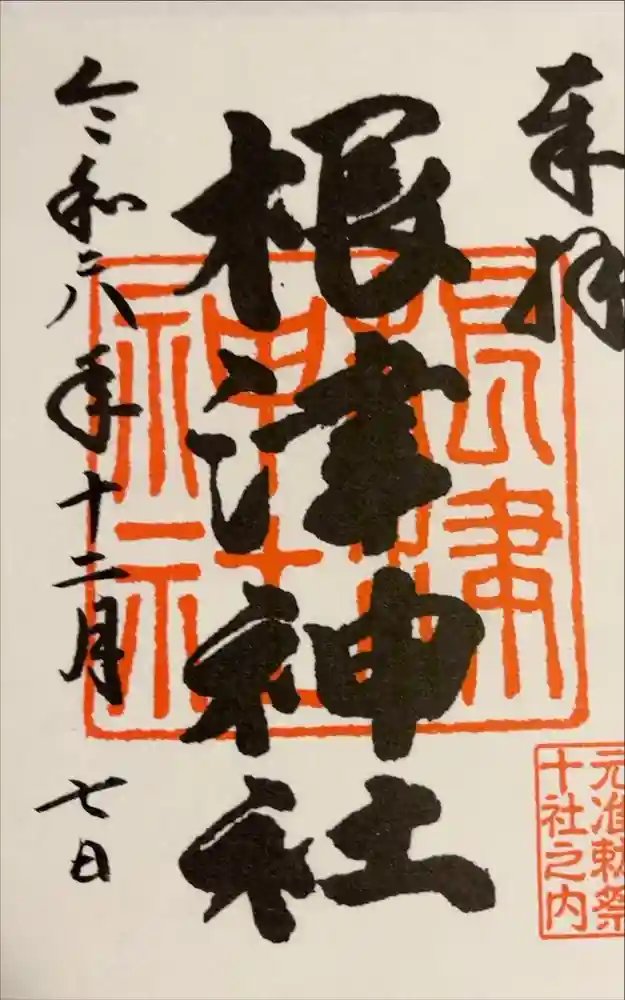 奉拝
根津神社
令和六年十二月七日
根津神社
元准勅祭
十社之内